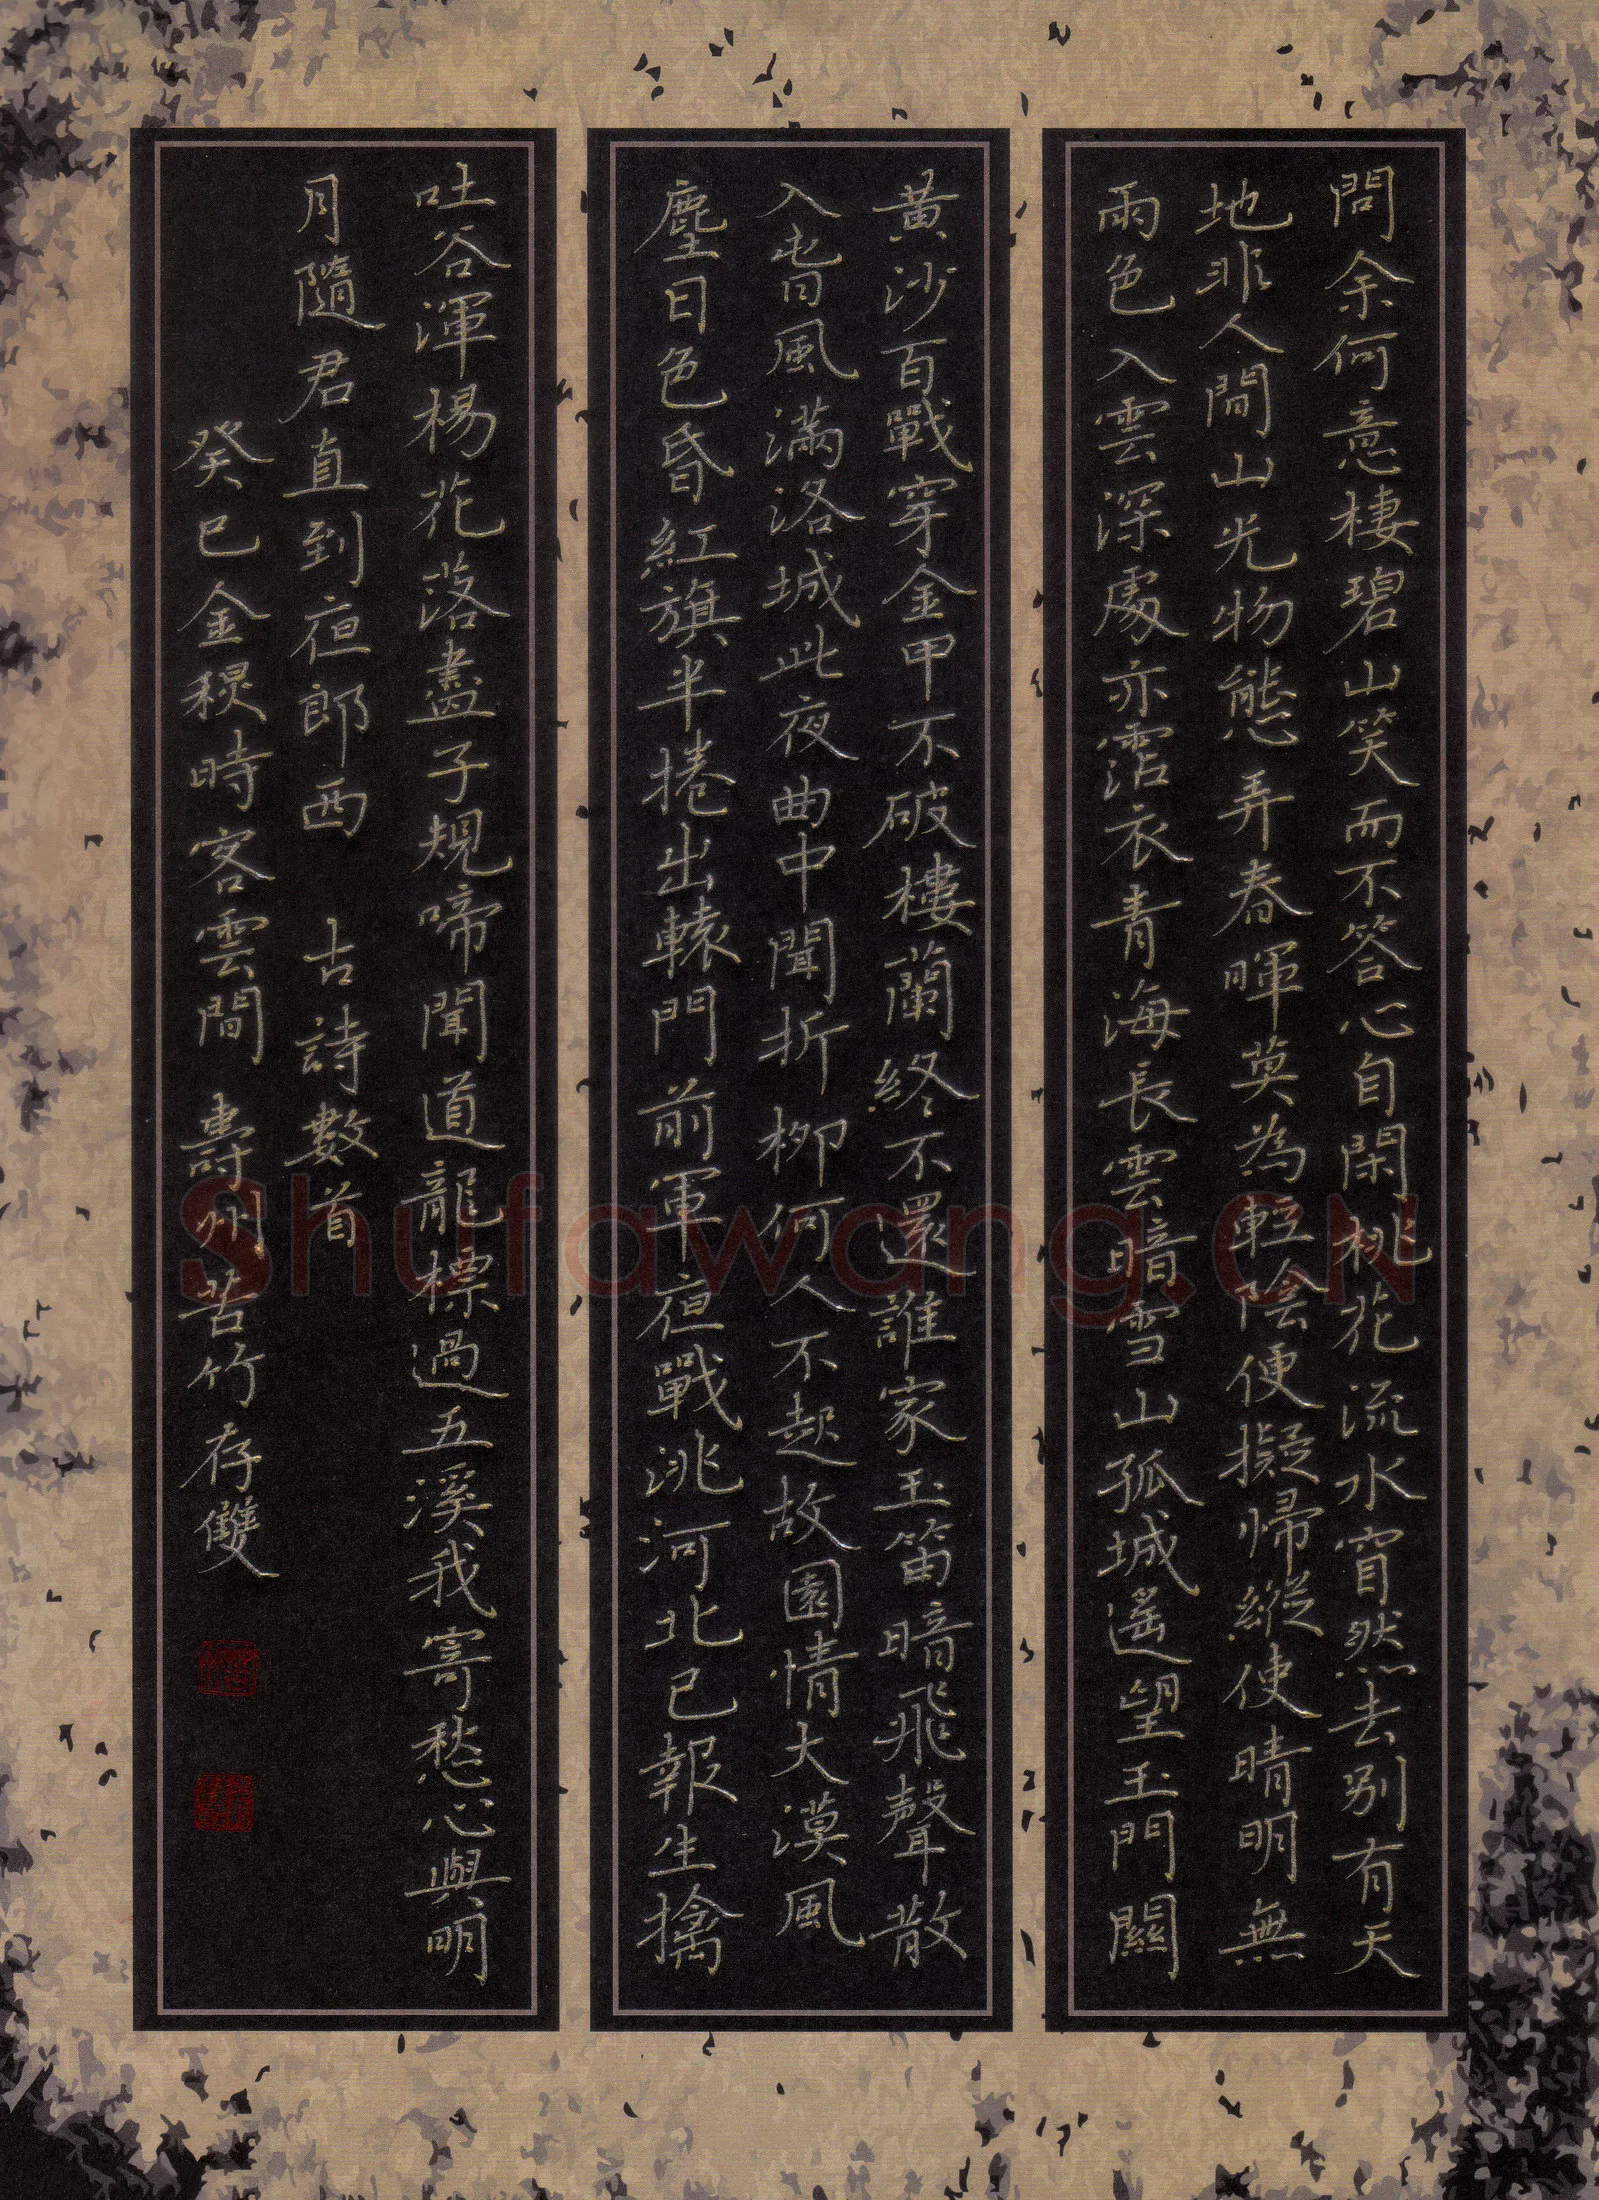 問余何意棲碧山笑而不答心自閑桃花流水窅然去別有天
地非人間山光物態弄春暉莫為輕陰便擬歸縱使晴明無
雨色入雲深處亦霑衣青海長雲暗雪山孤城遙望玉門關
黃沙百戰穿金甲不破樓蘭終不還誰家玉笛暗飛聲散
入春風滿洛城此夜曲中聞折柳何人不起故園情大漠風
塵日色昏紅旗半捲出轅門前軍夜戰洮河北已報生擒
吐谷渾楊花落盡子規啼聞道龍標過五溪我寄愁心與明
月隨君直到夜郎西 古詩數首
癸巳金秋時客雲間 壽州苦竹存雙
Shufawang.CN